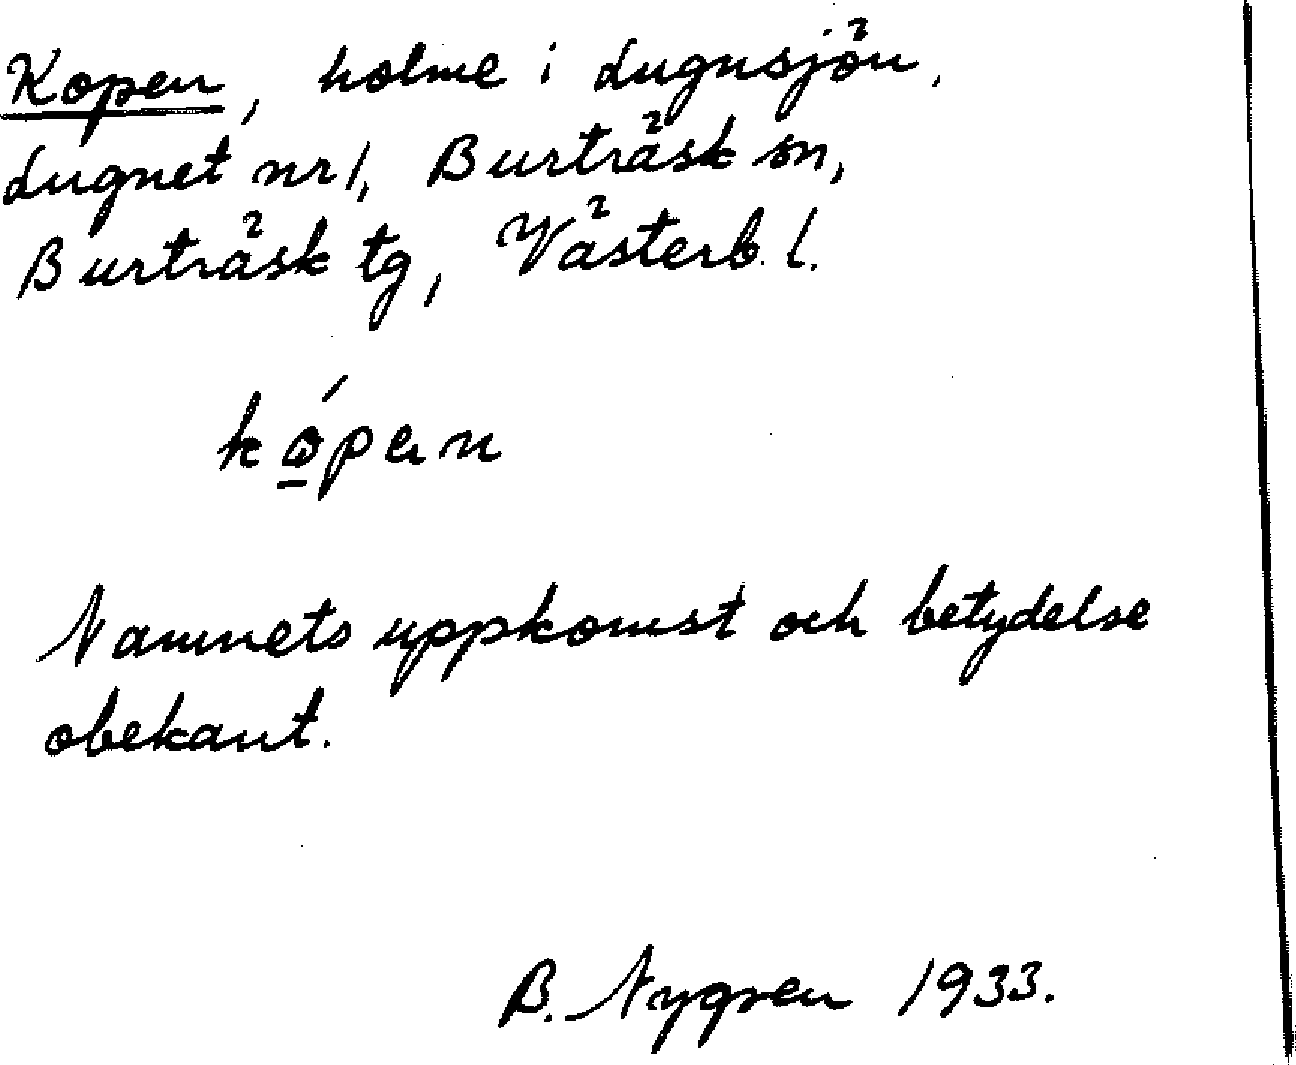 Kopen, holme i Lugnsjön,
Lugnet nr 1, Burträsk sn,
Burträsk tg, Västerb. l.
kǫ́pɐn
Namnets uppkomst och betydelse
obekant.
B. Nygren 1933.